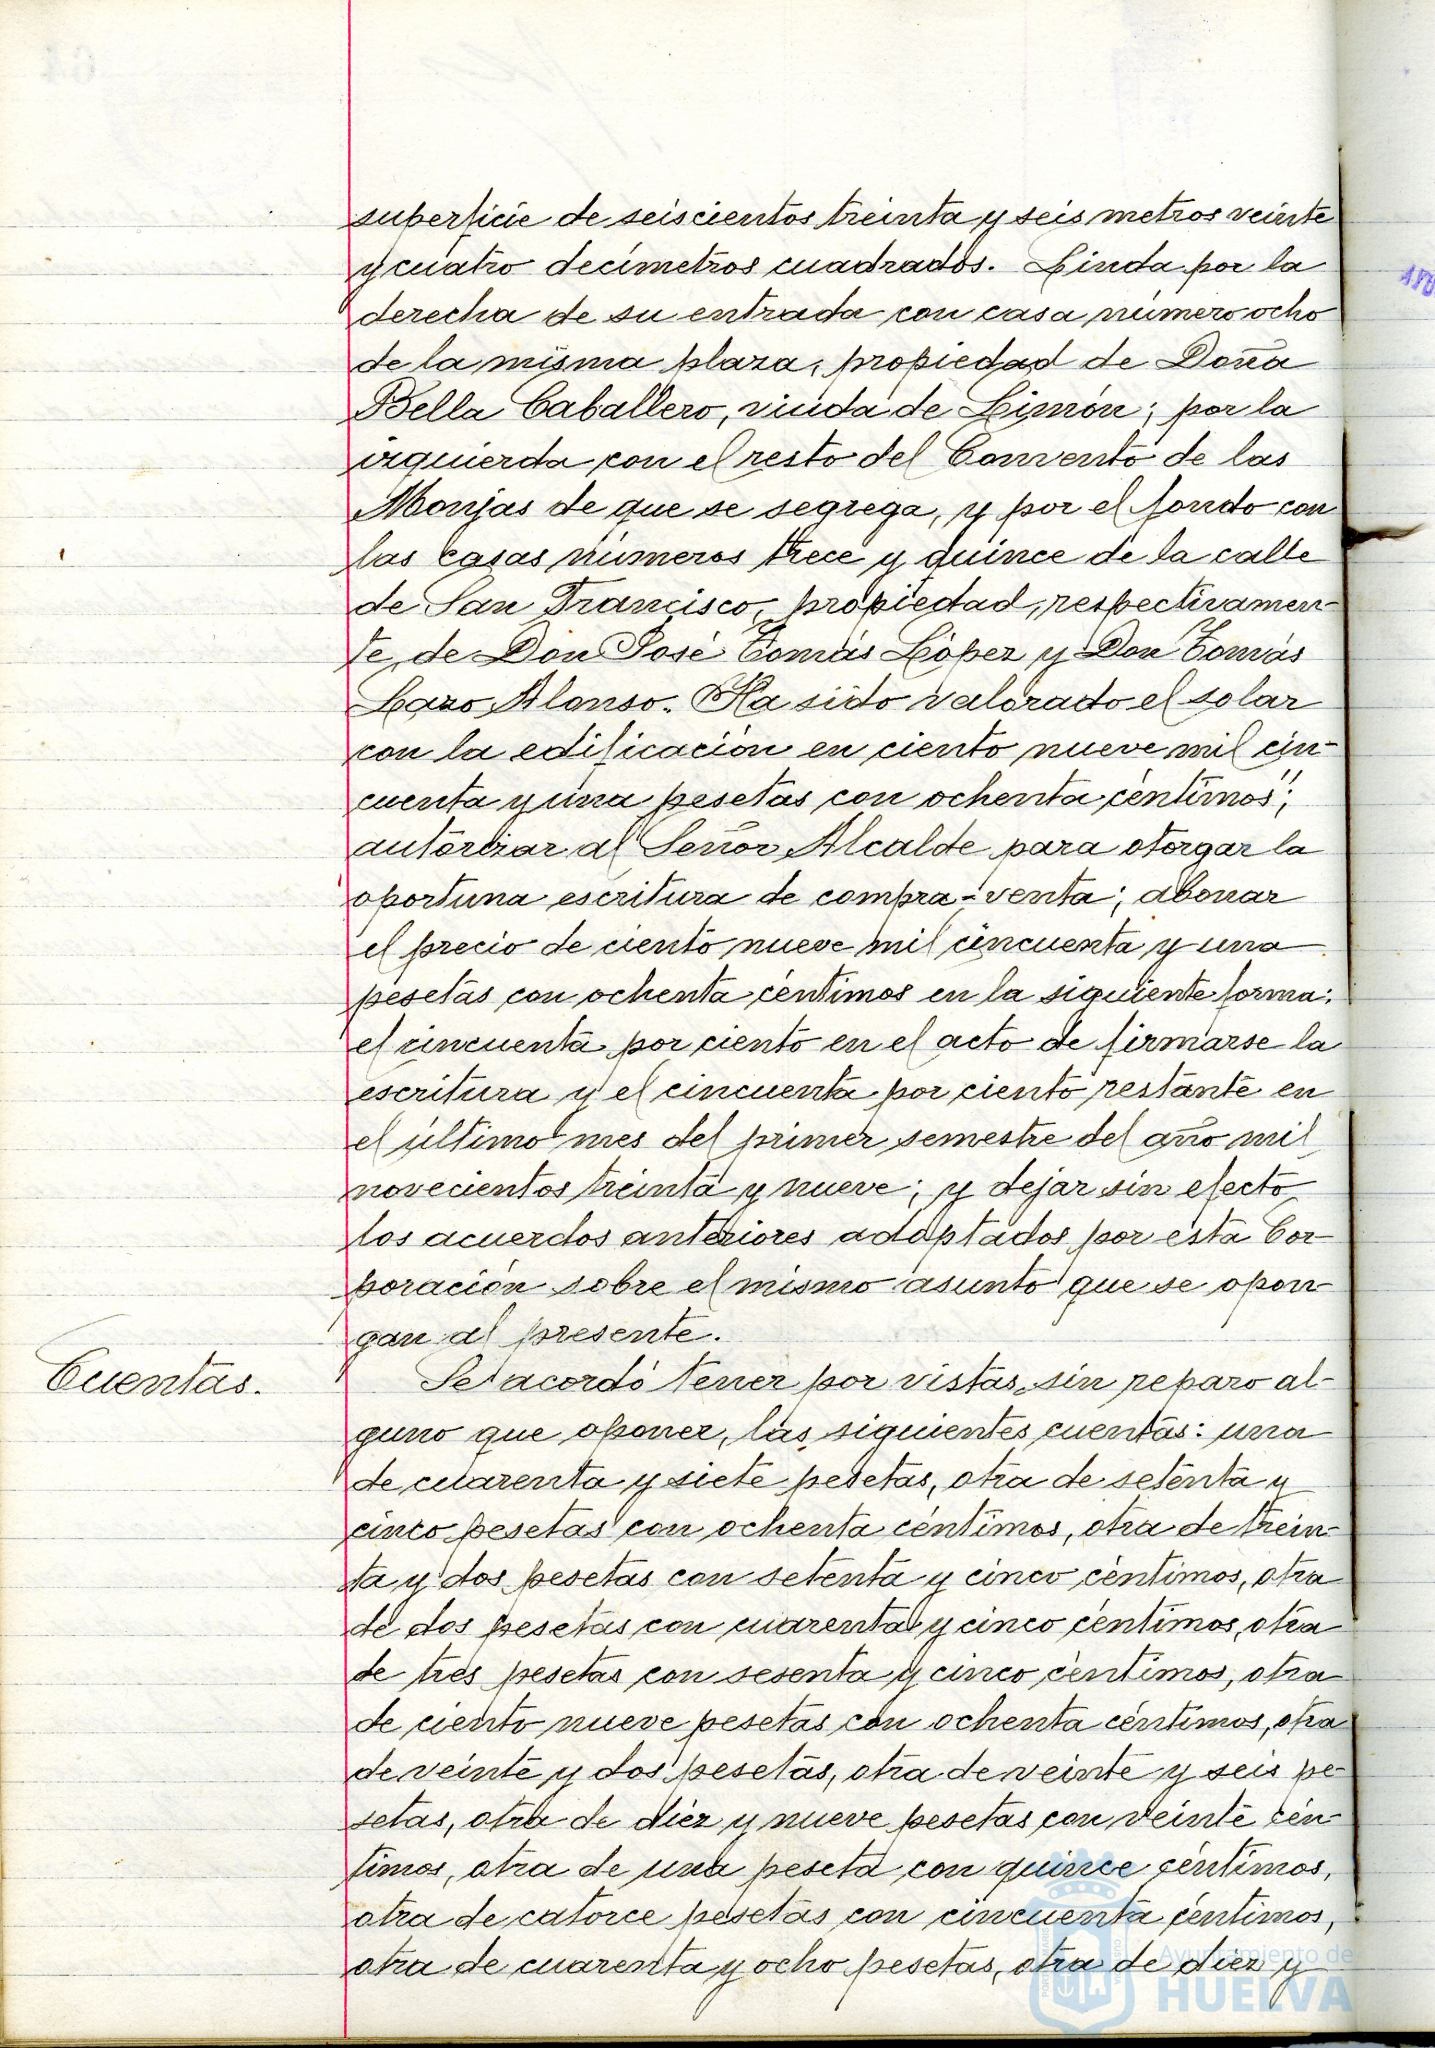 superficie de seiscientos treinta y seis metros veinte
y cuatro decímetros cuadrados. Linda por la
derecha de su entrada con casa número ocho
de la misma plaza, propiedad de Doña
Bella Caballero, viuda de Limón; por la
izquierda con el resto del Convento de las
Monjas de que se segrega, y por el fondo con
las casas números trece y quince de la calle
de San Francisco, propiedad, respectivamen-
te, de Don José Tomás López y Don Tomás
Lazo Alonso. Ha sido valorado el solar
con la edificación en ciento nueve mil cin-
cuenta y una pesetas con ochenta céntimos";
autorizar al Señor Alcalde para otorgar la
oportuna escritura de compra-venta; abonar
el precio de ciento nueve mil cincuenta y una
pesetas con ochenta céntimos en la siguiente forma:
el cincuenta por ciento en el acto de firmarse la
escritura y el cincuenta por ciento restante en
el último mes del primer semestre del año mil
novecientos treinta y nueve; y dejar sin efecto
los acuerdos anteriores adoptados por esta Cor-
poración sobre el mismo asunto que se opon-
gan al presente.
Cuentas.
Se acordó tener por vistas, sin reparo al-
guno que oponer, las siguientes cuentas: una
de cuarenta y siete pesetas, otra de setenta y
cinco pesetas con ochenta céntimos, otra de trein-
ta y dos pesetas con setenta y cinco céntimos, otra
de dos pesetas con cuarenta y cinco céntimos, otra
de tres pesetas con sesenta y cinco céntimos, otra
de ciento nueve pesetas con ochenta céntimos, otra
de veinte y dos pesetas, otra de veinte y seis pe-
setas, otra de diez y nueve pesetas con veinte cén-
timos, otra de una peseta con quince céntimos,
otra de catorce pesetas con cincuenta céntimos,
otra de cuarenta y ocho pesetas, otra de diez y
Ayuntamiento de
HUELVA